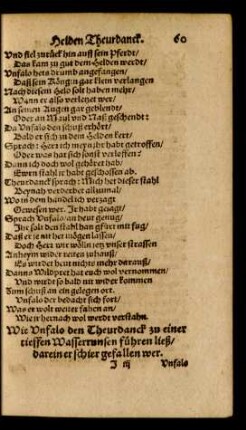 Helden Theurdanck. 60
Vnd fiel zurück hin auff sein Pferdt/
Das kam zu gut dem Helden werdt/
Vnfalo hets drumb angefangen/
Daß sein Köngin gar klein verlangen
Nach diesem Helo solt haben mehr/
Wann er also verletzet wer/
An seinen Augen gar geblendt/
Oder an Maul vnd Naß geschendt:
Da Vnfalo den schuß erhört/
Bald er sich zu dem Helden kert/
Sprach: Herr ich mein jhr habt getroffen/
Oder was hat sich sonst verloffen?
Dann ich doch wol gehöret hab/
Ewrn stahl jr habt geschossen ab.
Theurdanck sprach: Mich het dieser stahl
Beynah verderbet allzumal/
Wo in dem handel ich verzagt
Gewesen wer. Je habt gesagt/
Sprach Vnfalo an heut genug/
Jhr solt den stahl han gfürt mit fug/
Daß er je nit her mögen lassen/
Doch Herr wir wöllin jetz vnser strassen
Anheym wider reiten zuhauß/
Es wirdet heut nichts mehr darauß/
Dann s Wildpret hat euch wol vernommen/
Vnd wirdt so bald nit wider kommen
Zum schuß an ein gelegen ort.
Vnfalo der bedacht sich fort/
Was er wolt weiter fahen an/
Wie jr hernach wol werdt verstahn.
Wie Vnfalo den Theurdanck zu einer
tieffen Wasserrunsen führen ließ/
darein er schier gefallen wer.
J iij Vnfalo